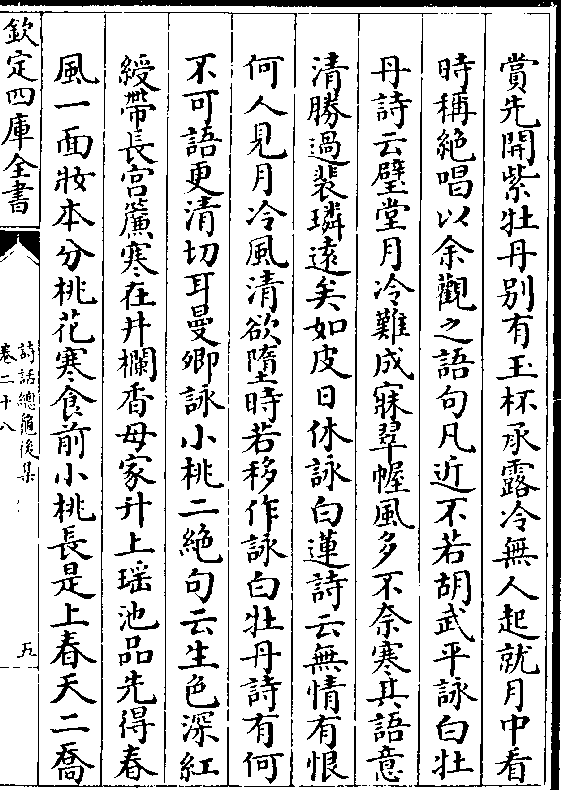 賞先開紫牡丹别有玉杯承露冷無人起就月中看
時稱絶唱以余觀之語句凡近不若胡武平詠白牡
丹詩云璧堂月冷難成寐翠幄風多不奈寒其語意
清勝過裴璘逺矣如皮日休詠白蓮詩云無情有恨
何人見月冷風清欲墮時若移作詠白牡丹詩有何
不可語更清切耳曼卿詠小桃二絶句云生色深紅
綬帶長宫簾寒在井欄香母家升上瑶池品先得春
風一面妝本分桃花寒食前小桃長是上春天二喬
欽定四庫全書
詩話總龜後集
卷二十八
五